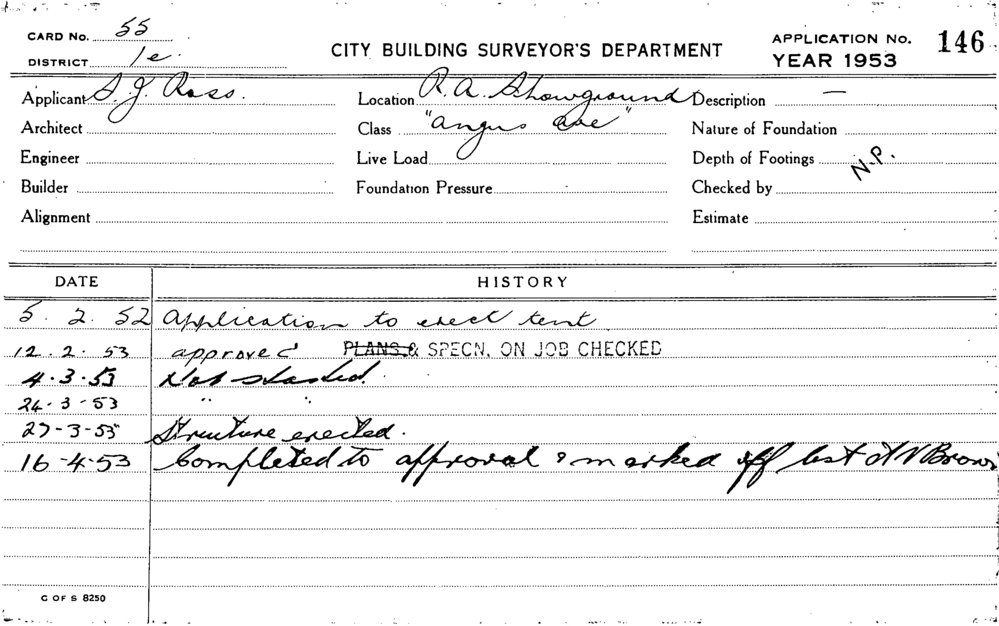 CARD No. 55
DISTRICT 1e.
CITY BUILDING SURVEYOR'S DEPARTMENT
APPLICATION No. 146
YEAR 1953
Applicant S. J. Ross.
Location R.A. Showground
Description —
Architect
Class "Angus Ave"
Nature of Foundation
Engineer
Live Load
Depth of Footings N.P.
Builder
Foundation Pressure
Checked by
Alignment
Estimate
DATE HISTORY
5. 2. 52 Application to erect tent
12. 2. 53 approved PLANS & SPECN. ON JOB CHECKED
4.3.53 Not started.
24-3-53 " "
27-3-53 Structure erected.
16-4-53 Completed to approval & marked off list Brown
C OF S 8250